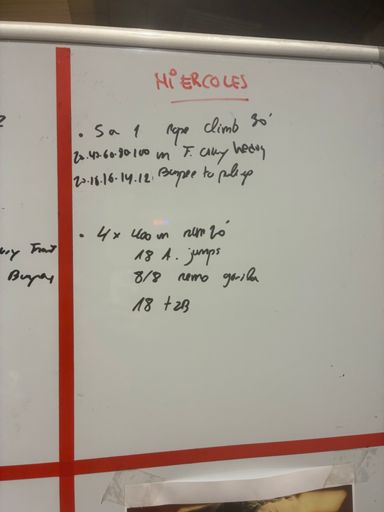 MiERCOLES
• 5 a 1 rope climb 30'
20.40.60.80.100 m F. carry heavy
20.18.16.14.12. Burpee to pull up
• 4x 400 m run 20'
18 A. jumps
8/8 remo gorila
18 t2B
Burpees